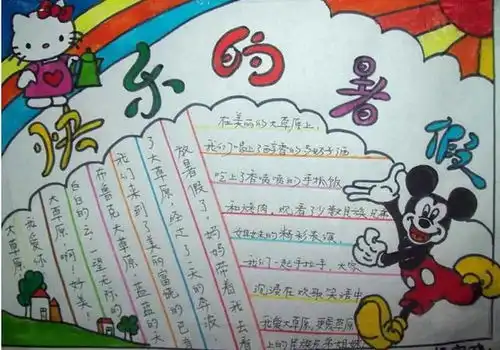 快乐的暑假
放暑假了,妈妈带着我去看
了大草原,经过了一天的奔波
我们来到了美丽富饶的巴音
布鲁克大草原,蓝蓝的天
白白的云一望无际的
大草原,啊!好美!
我爱你
大草原
在美丽的大草原上,
我们喝上了醇香的马奶子酒
吃上了香喷喷的手抓饭
和烤肉,观看了少数民族兄弟
姐妹的精彩表演,
我们一起手拉手,大家
沉浸在欢歌笑语中
我爱大草原,更爱草原
上的其族兄弟姐妹